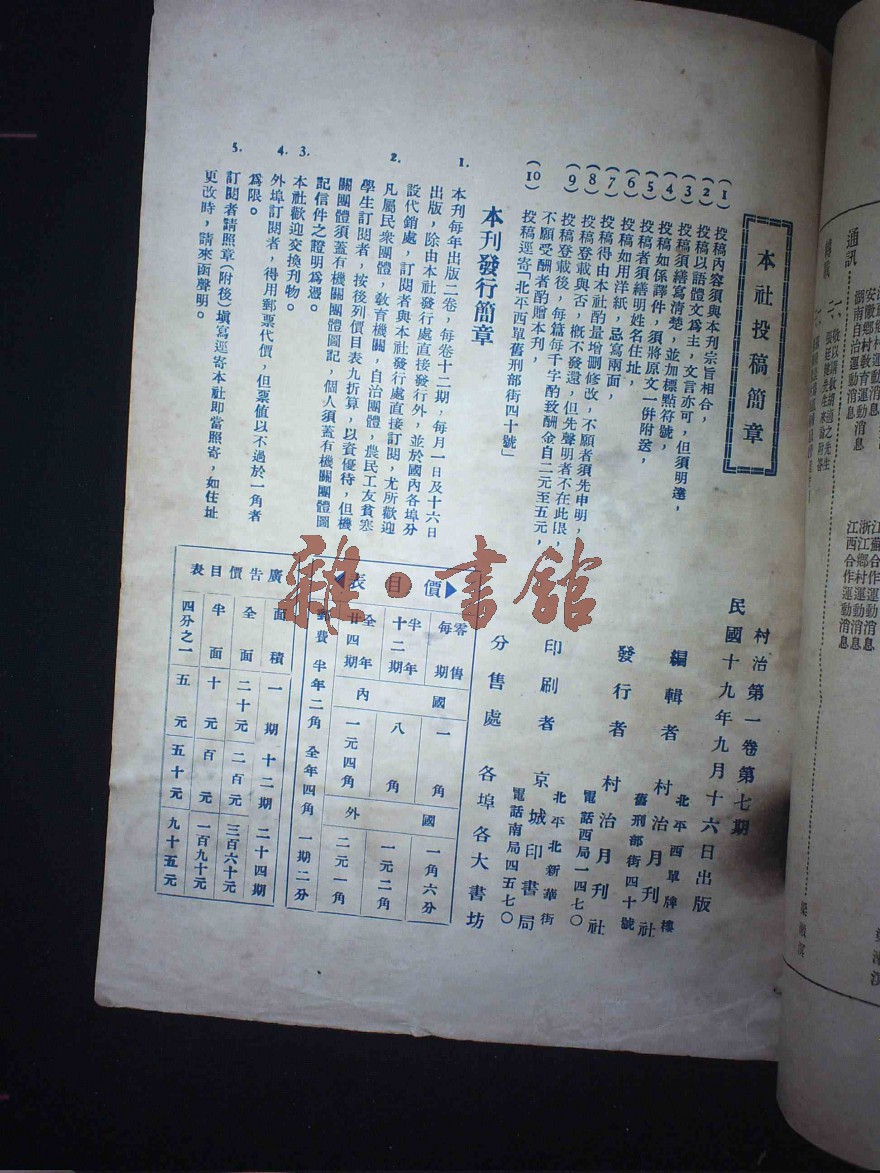 本社投稿簡章
(1)投稿內容須與本刊宗旨相合，
(2)投稿以語體文為主，文言亦可，但須明達，
(3)投稿須繕寫清楚，並加標點符號，
(4)投稿如係譯件，須將原文一併附送，
(5)投稿者須繕明姓名住址，
(6)投稿如用洋紙，忌寫兩面，
(7)投稿得由本社酌量增删修改，不願者須先申明，
(8)投稿登載與否，概不發還，但先聲明者不在此限，
(9)投稿登載後，每篇每千字酌致酬金自二元至五元，
不願受酬者酌贈本刊，
(10)投稿逕寄「北平西單舊刑部街四十號」
本刊發行簡章
1.本刊每年出版二卷，每卷十二期，每月一日及十六日
出版，除由本社發行處直接發行外，並於國內各埠分
設代銷處，訂閱者與本社發行處直接訂閱，尤所歡迎
2.凡屬民衆團體，教育機關，自治團體，農民工友貧寒
學生訂閱者，按後列價目表九折算，以資優待，但機
關團體須蓋有機關團體圖記，個人須蓋有機關團體圖
記信件之證明爲憑。
3.本社歡迎交換刊物。
4.外埠訂閱者，得用郵票代價，但票值以不過於一角者
爲限。
5.訂閱者請照章(附後)填寫逕寄本社即當照寄，如住址
更改時，請來函聲明。
村治第一卷第七期
民國十九年九月十六日出版
編輯者 村治月刊社
北平西單牌樓
舊刑部街四十號
發行者 村治月刊社
電話西局一四七〇
印刷者 京城印書局
北平北新華街
電話南局四五七〇
分售處 各埠各大書坊
價目表
零售每期 國內 一角 國外 一角六分
半年十二期 八角 一元二角
全年廿四期 一元四角 二元一角
郵費 半年二角 全年四角 一期二分
廣告價目表
面積 一期 十二期 二十四期
全面 二十元 二百元 三百六十元
半面 十元 百元 一百九十元
四分之一 五元 五十元 九十五元
雜·書館
通訊
安徽鄉村教育運動消息
湖南自治運動消息
江蘇合作運動消息
浙江鄉村運動消息
江西合作運動消息